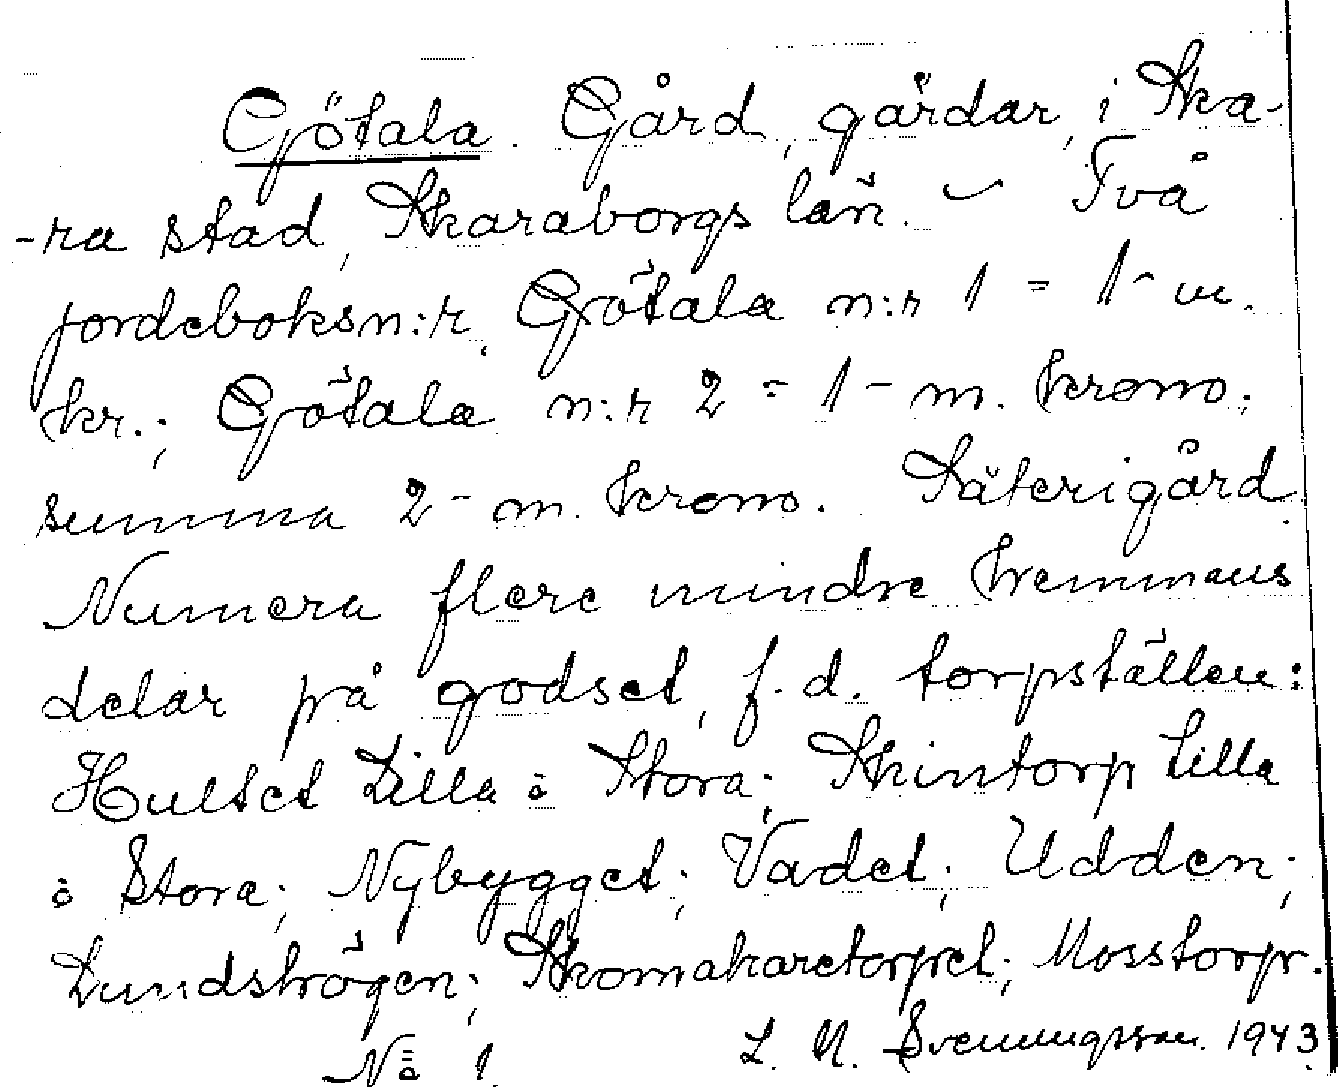 Götala. Gård, gårdar, i Ska-
-ra stad, Skaraborgs län. - Två
jordeboksn:r. Götala n:r 1 = 1- m.
kr.; Götala n:r 2 = 1- m. krono;
summa 2- m. krono. Säterigård.
Numera flere mindre hemmans
delar på godset, f. d. torpställen:
Hultet Lilla o Stora; Skintorp Lilla
o Stora; Nybygget; Vadet; Udden;
Lundshögen; Skomakaretorpet; Mosstorp.
No 1. L. M. Svenungsson. 1943.